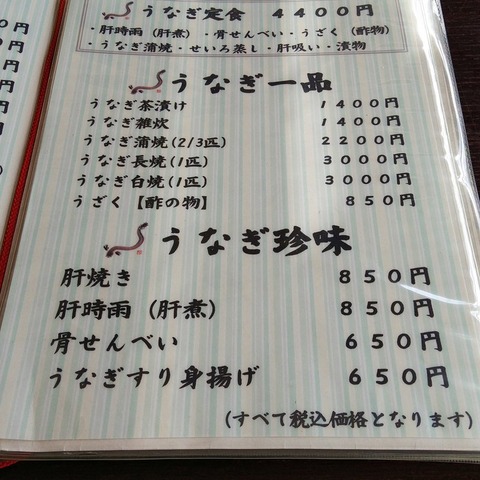 うなぎ定食 4400円
・肝時雨(肝煮)・骨せんべい・うざく(酢物)
・うなぎ蒲焼・せいろ蒸し・肝吸い・漬物
うなぎ一品
うなぎ茶漬け 1400円
うなぎ雑炊 1400円
うなぎ蒲焼(2/3匹) 2200円
うなぎ長焼(1匹) 3000円
うなぎ白焼(1匹) 3000円
うざく【酢の物】 850円
うなぎ珍味
肝焼き 850円
肝時雨(肝煮) 850円
骨せんべい 650円
うなぎすり身揚げ 650円
(すべて税込価格となります)